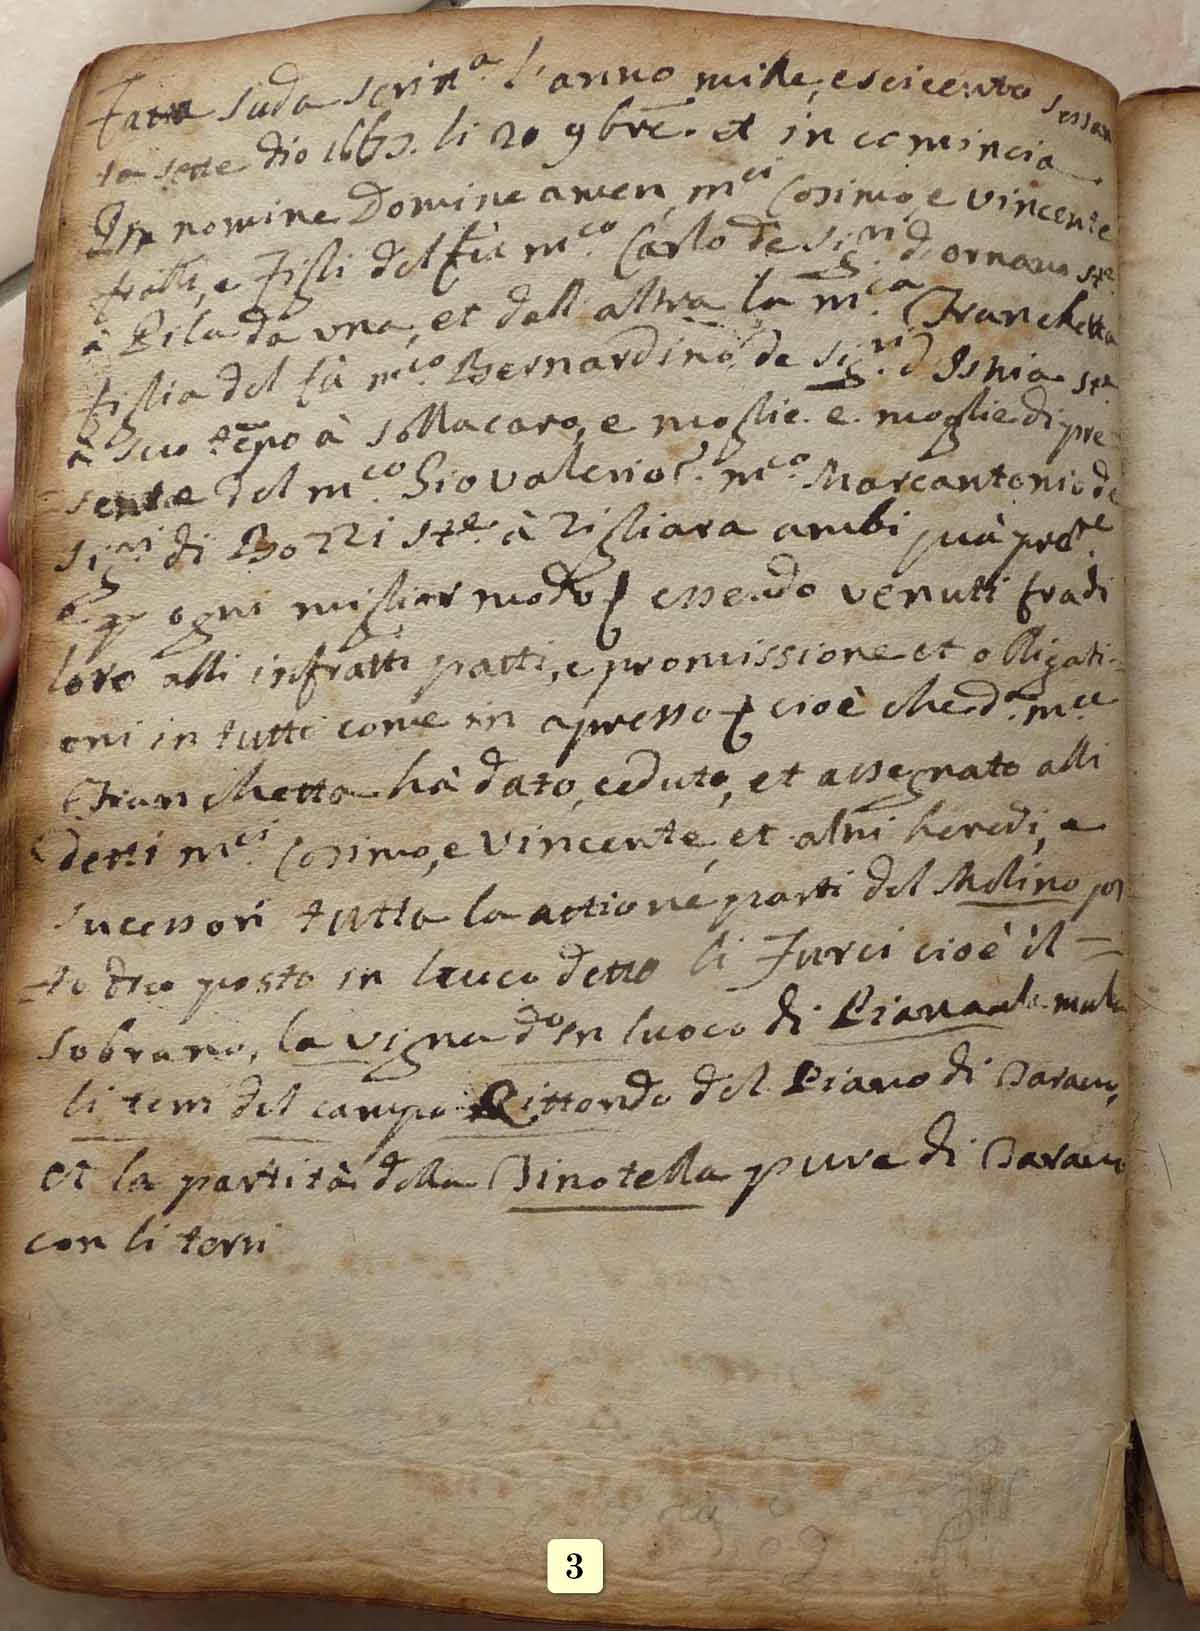 Fatta suda scritt.a l'anno mille, e seicento sessan
ta sette dio 1667. li 20 9bre. et in comincia
In nomine Domine amen m.ci Cosimo, e Vincente
fratti, e figli del fù m.co Carlo de Sig.ri d'ornano st.e
à Pila da una, et dall altra la m.ca Franchetta
figlia del fù m.co Bernardino de Sig.ri d Istria st.e
à suo tepo à sollacaro, e moglie. e. moglie di pre
sente del m.co Gio valerio q. m.co Marcantonio de
Sig.ri di Bozzi st.e à Zigliara ambi quà pre.te
e p ogni miglior modo essendo venuti fra di
loro alli infratti patti, e promissione et obligati
oni in tutto come in apresso cioè che d.a m.ca
Franchetta hà dato, ceduto, et assegnato alli
detti m.ci Cosimo, e Vincente, et alni heredi, e
sucessori tutta la attione parti del Molino pos
to dico posto in luuco detto li Furci cioè il
sobrano, la vigna d.o in luoco di Piana
li tem del campo Rittondo del Piano di
et la partità della Binotella pure di
con li terri
3